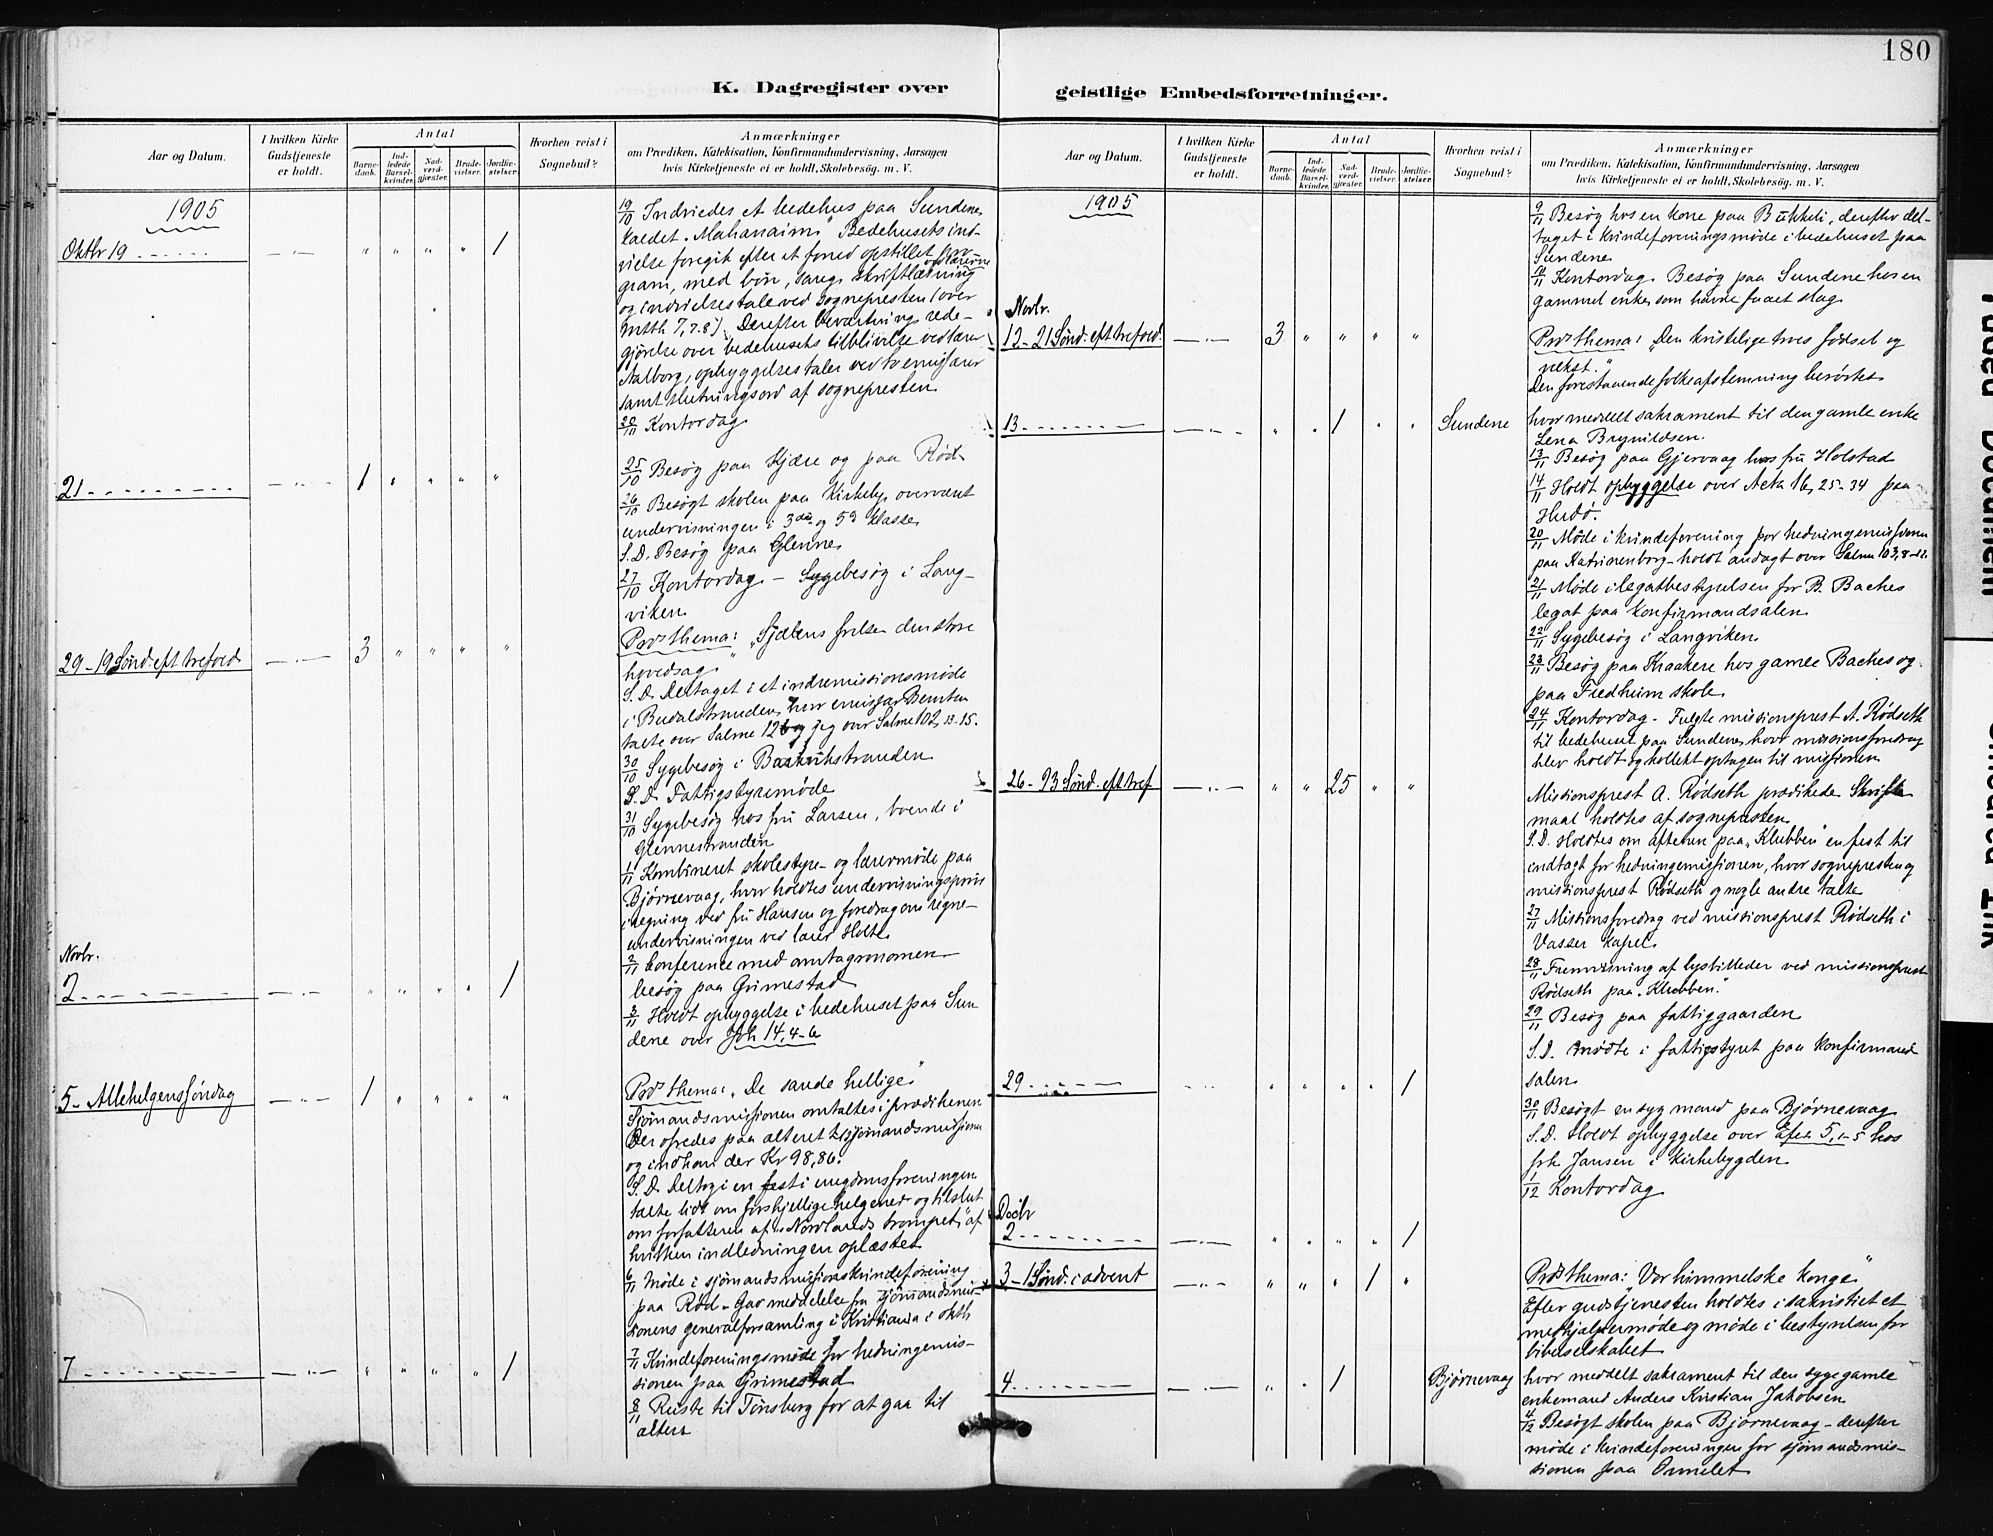 180
K. Dagregister over
Aar og Datum.
I hvilken Kirke Gudstjeneste er holdt.
Antal
Barne-daab.
Ind-ledede Barsel-kvinder.
Nad-verd-gjæster.
Brude-vielser.
Jordfæ-stelser.
Hvorhen reist i Sognebud?
Anmærkninger
om Prædiken, Katekisation, Konfirmandundervisning, Aarsagen
hvis Kirketjeneste ei er holdt, Skolebesøg. m. V.
1905
Oktbr 19 " " " " 1
19/10 Indviedes et bedehus paa Sundene,
kaldet "Mahanaim" Bedehusets ind-
vielse foregik efter et forud opstillet pro
gram, med bøn, sang, skriftlæsning
og indvielsestale ved sognepresten (over
Mtth 7, 7.8). Derefter beværtning, rede-
gjørelse over bedehusets tilblivelse ved lærer
Aalborg, opbyggelsestaler ved to emissærer
samt slutningsord af sognepresten
20/11 Kontordag
21 1 " " " "
25/10 Besøg paa Kjære og paa Rød
26/10 Besøgt skolen paa Kirkeby, overvært
undervisningen i 3die og 5te klasse
S.D. Besøg paa Glenne
27/10 Kontordag - Sygebesøg i Lang-
viken
29 - 19 Sønd. eft trefold 3 " " " "
Præd thema: "Sjælens frelse den store
hovedsag"
S.D. Deltaget i et indremissionsmøde
i Budalstranden, hvor emissær Bentsen
talte over Salme 126 og jeg over Salme 102, 13-15.
30/10 Sygebesøg i Buarkstranden
S.D. Fattigstyremøde
31/10 Sygebesøg hos fru Larsen, boende i
Glennestranden
1/11 Kombineret skolestyre- og lærermøde paa
Bjørnevaag, hvor holdtes undervisningsprøve
i regning ved frk Hansen og foredrag om regne-
undervisningen ved lærer Holte
Novbr.
2 " " " " 1
2/11 Conference med amtagronomen -
besøg paa Grimestad
3/11 Holdt opbyggelse i bedehuset paa Sun
dene over Joh 14, 4-6
5 - Allehelgenssøndag 1 " " " "
Præd thema: "De sande hellige"
Sjømandsmissionen omtaltes i prædikenen
Der ofredes paa alteret til sjømandsmissionen
og indkom der Kr 98,86.
S.D. Deltog i en fest i ungdomsforeningen
talte lidt om forskjellige helgener og tilslut
om forfatteren af "Nordlands trompet" af
hvilken indledningen oplæstes
6/11 Møde i sjømandsmissionskvindeforening
paa Rød - Gav meddelelse fra sjømandsmis-
sionens generalforsamling i Kristiania i oktb
7 " " " " 1
7/11 Kvindeforeningsmøde for hedningemis-
sionen paa Grimestad
8/11 Reiste til Tønsberg for at gaa til
alters
geistlige Embedsforretninger.
Aar og Datum.
I hvilken Kirke Gudstjeneste er holdt.
Antal
Barne-daab.
Ind-ledede Barsel-kvinder.
Nad-verd-gjæster.
Brude-vielser.
Jordfæ-stelser.
Hvorhen reist i Sognebud?
Anmærkninger
om Prædiken, Katekisation, Konfirmandundervisning, Aarsagen
hvis Kirketjeneste ei er holdt, Skolebesøg. m. V.
1905
9/11 Besøg hos en kone paa Bukkeli, derefter del-
taget i kvindeforeningsmøde i bedehuset paa
Sundene
10/11 Kontordag. Besøg paa Sundene hos en
gammel enke, som havde faaet slag
Novbr.
12 - 21 Sønd. eft trefold. 3 " " " "
Præd thema: "Den kristelige troes fødsel og
vekst."
Den forestaaende folkeafstemning berørtes
13 " " 1 " " Sundene
hvor meddelt sakrament til den gamle enke
Lena Brynildsen.
13/11 Besøg paa Gjervaag hos fru Holstad
14/11 Holdt opbyggelse over Acta 16, 25-34 paa
Hudø.
20/11 Møde i kvindeforening for hedningemissionen
paa Katrinenborg - holdt andagt over Salme 103, 8-12.
21/11 Møde i legatbestyrelsen for B. Baches
legat paa konfirmandsalen
22/11 Sygebesøg i Langviken
23/11 Besøg paa Kraakere hos gamle Baches og
paa Fredheim skole
24/11 Kontordag - Fulgte missionsprest A. Rødseth
til bedehuset paa Sundene, hvor missionsforedrag
blev holdt og kollekt optagen til missionen
26 - 23 Sønd. eft tref " " 25 " "
Missionsprest A. Rødseth prædikede. Skrifte
maal holdtes af sognepresten
S.D. Holdtes om aftenen paa "Klubben" en fest til
indtægt for hedningemissionen, hvor sognepresten og
missionsprest Rødseth og nogle andre talte
27/11 Missionsforedrag ved missionsprest Rødseth i
Vasser kapel
28/11 Fremvisning af lysbilleder ved missionsprest
Rødseth paa "Klubben."
29/11 Besøg paa fattiggaarden
S.D. mødte i fattigstyret paa Konfirmand
salen
29 " " " " 1
30/11 Besøgt en syg mand paa Bjørnevaag
S.D. Holdt opbyggelse over Efes. 5, 1-5 hos
frk Jansen i Kirkebygden
1/12 Kontordag
Decbr
2 " " " " 1
3 - 1 Sønd. i advent " " " 1 "
Præd thema: "Vor himmelske konge"
Efter gudstjenesten holdtes i sakristiet et
medhjælpermøde og møde i bestyrelsen for
bibelselskabet
4 " " 1 Bjørnevaag
hvor meddelt sakrament til den syge gamle
enkemand Anders Kristian Jakobsen
4/12 Besøgt skolen paa Bjørnevaag - derefter
møde i kvindeforeningen for sjømandsmis-
sionen paa Ormelet